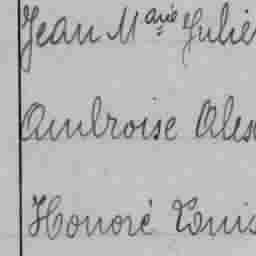 Jean Marie Julie
Ambroise Alex
Honoré Louis